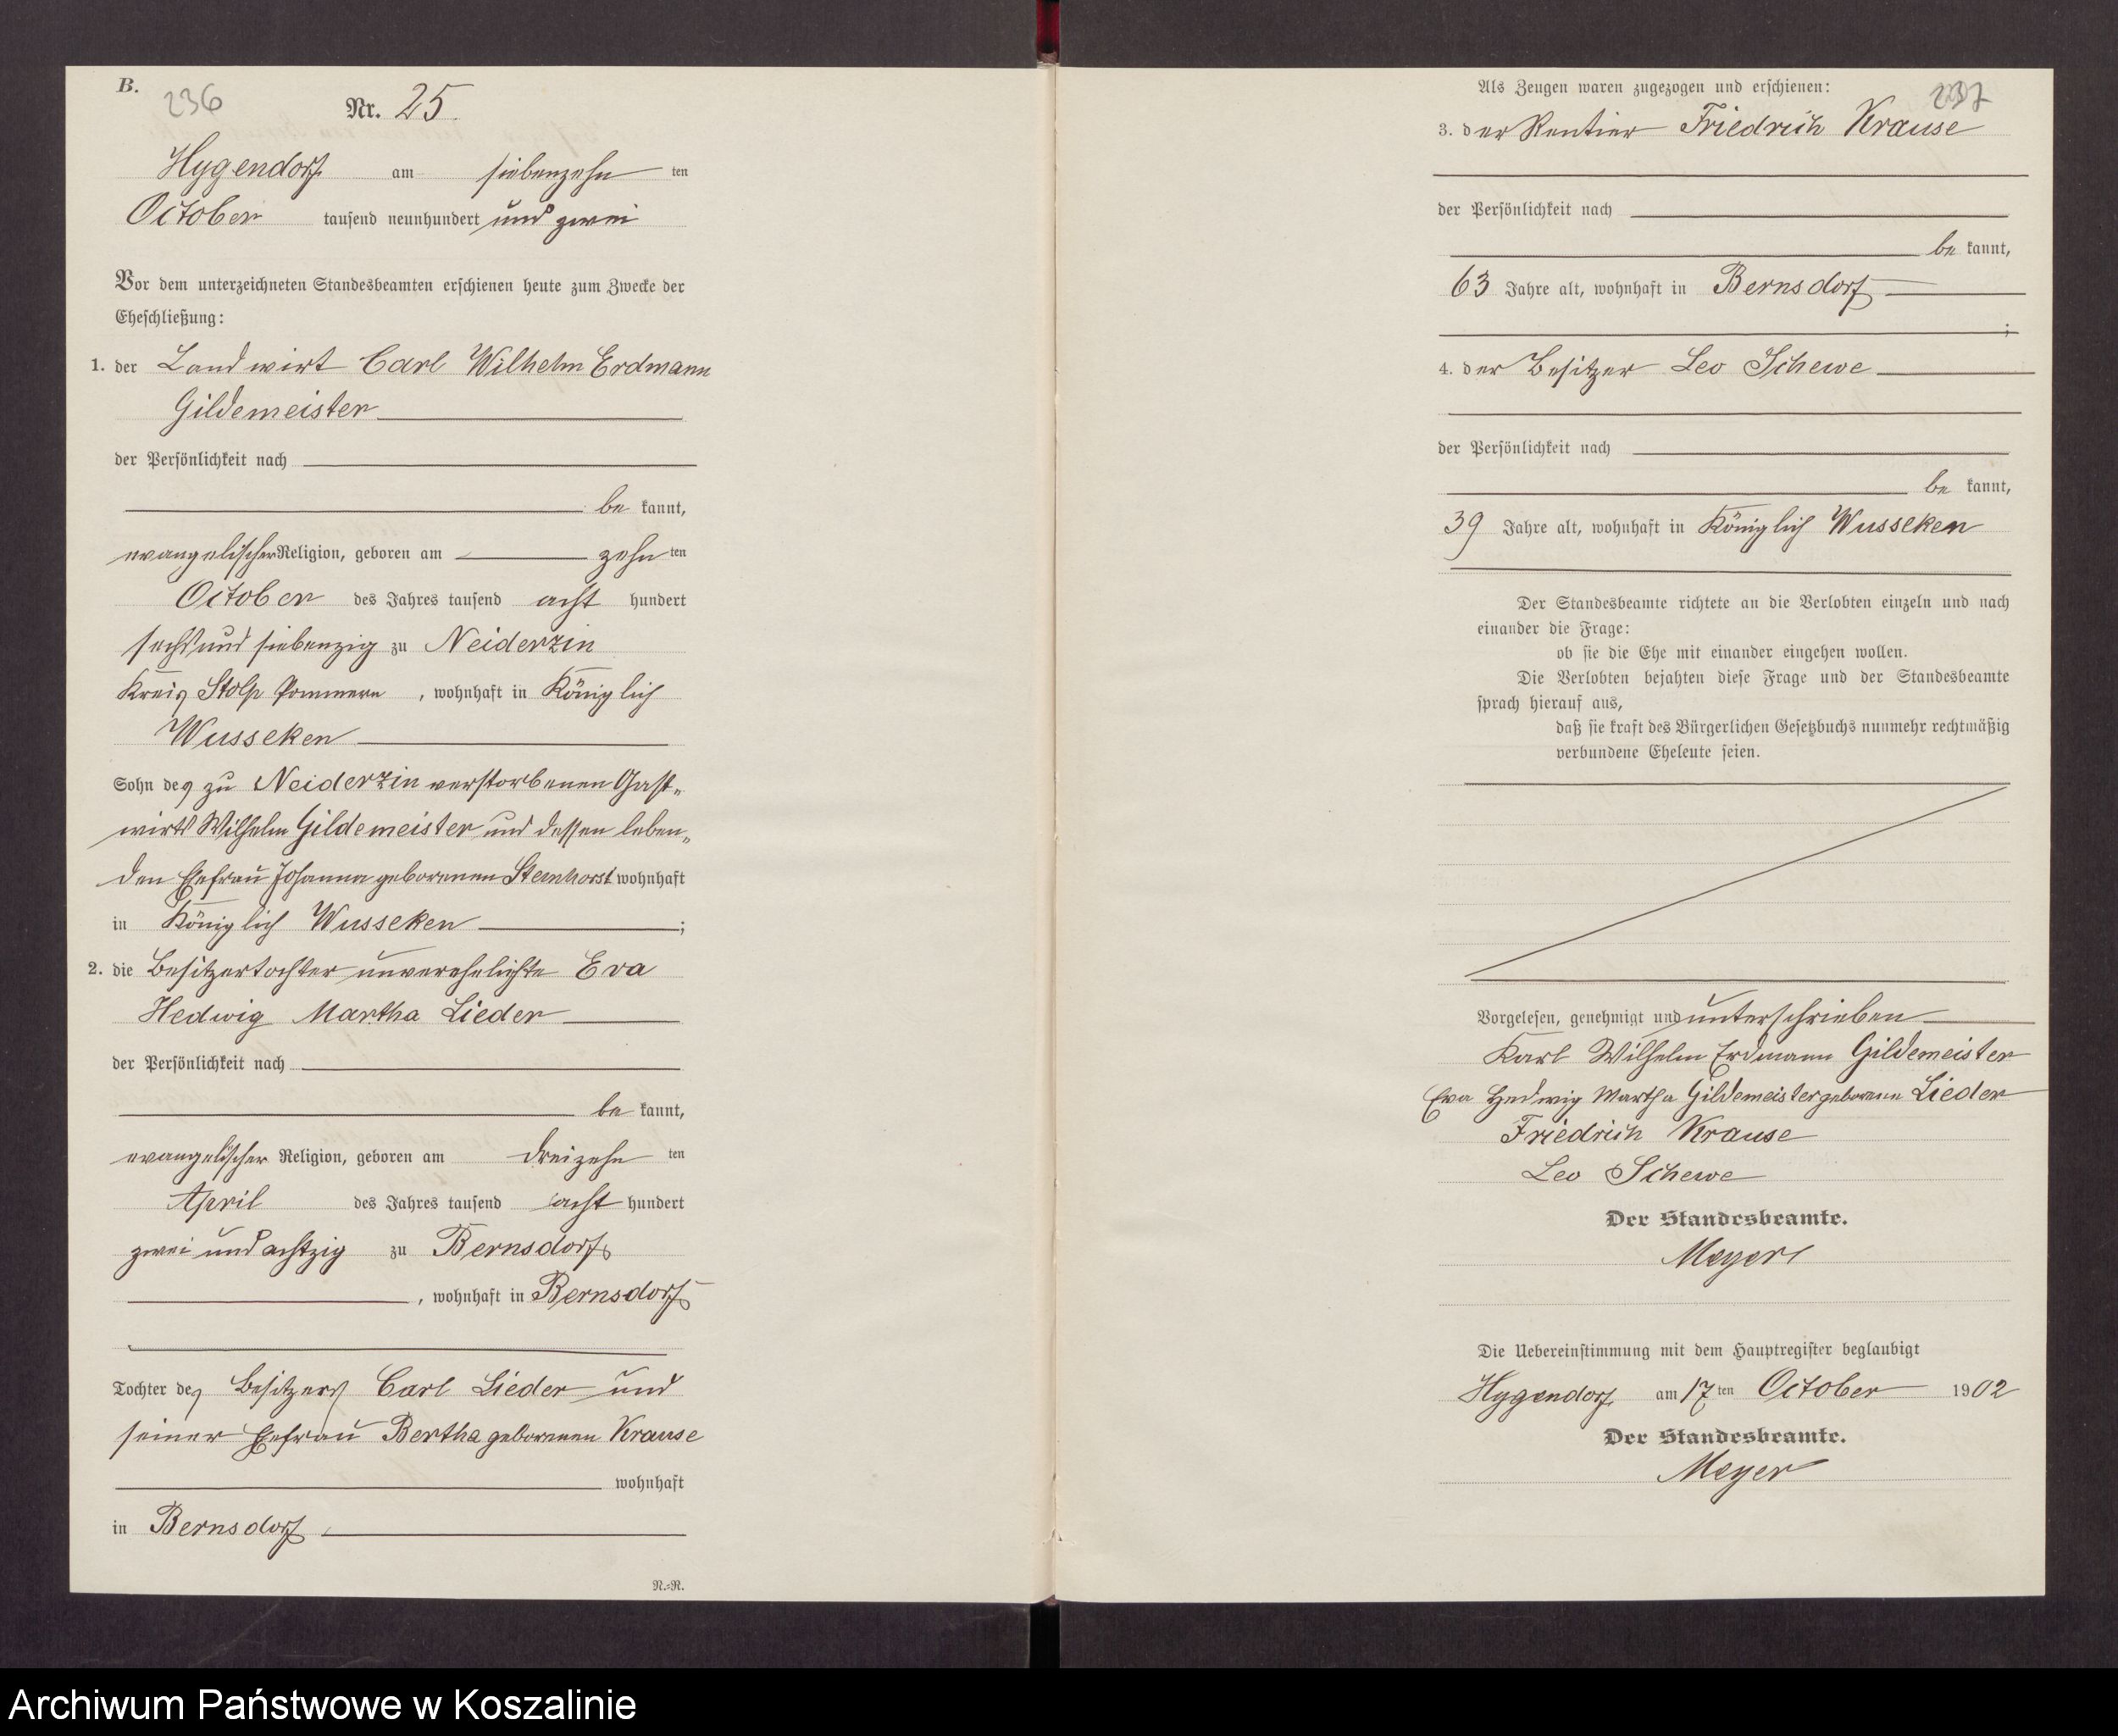 B.
236
Nr. 25.
Hygendorf am siebenzehn ten
October tausend neunhundert und zwei
Vor dem unterzeichneten Standesbeamten erschienen heute zum Zwecke der
Eheschließung:
1. der Landwirt Carl Wilhelm Erdmann
Gildemeister
der Persönlichkeit nach
be kannt,
evangelischer Religion, geboren am zehn ten
October des Jahres tausend acht hundert
sechs und siebenzig zu Neiderzin
Kreis Stolp Pommern, wohnhaft in Königlich
Wusseken
Sohn des zu Neiderzin verstorbenen Gast-
wirts Wilhelm Gildemeister und dessen leben-
den Ehefrau Johanna geborenen Steinhorst wohnhaft
in Königlich Wusseken;
2. die Besitzertochter unverehelichte Eva
Hedwig Martha Lieder
der Persönlichkeit nach
be kannt,
evangelischer Religion, geboren am dreizehn ten
April des Jahres tausend acht hundert
zwei und achtzig zu Bernsdorf
, wohnhaft in Bernsdorf
Tochter des Besitzers Carl Lieder und
seiner Ehefrau Bertha geborenen Krause
wohnhaft
in Bernsdorf
N.=N.
237
Als Zeugen waren zugezogen und erschienen:
3. der Rentier Friedrich Krause
der Persönlichkeit nach
be kannt,
63 Jahre alt, wohnhaft in Bernsdorf
;
4. der Besitzer Leo Schewe
der Persönlichkeit nach
be kannt,
39 Jahre alt, wohnhaft in Königlich Wusseken
Der Standesbeamte richtete an die Verlobten einzeln und nach
einander die Frage:
ob sie die Ehe mit einander eingehen wollen.
Die Verlobten bejahten diese Frage und der Standesbeamte
sprach hierauf aus,
daß sie kraft des Bürgerlichen Gesetzbuchs nunmehr rechtmäßig
verbundene Eheleute seien.
Vorgelesen, genehmigt und unterschrieben
Karl Wilhelm Erdmann Gildemeister
Eva Hedwig Martha Gildemeister geborene Lieder
Friedrich Krause
Leo Schewe
Der Standesbeamte.
Meyer
Die Uebereinstimmung mit dem Hauptregister beglaubigt
Hygendorf am 17 ten October 1902
Der Standesbeamte.
Meyer
Archiwum Państwowe w Koszalinie